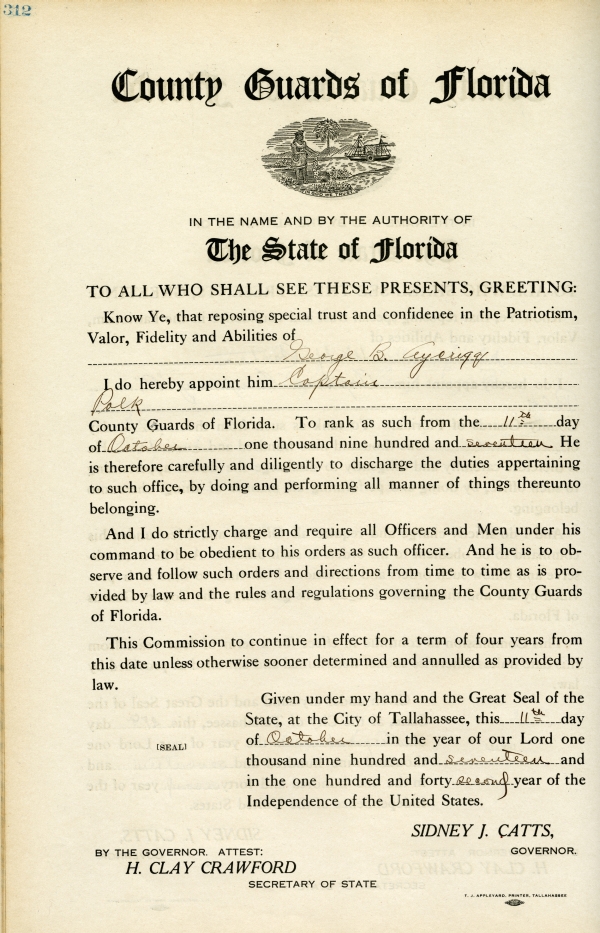 312
County Guards of Florida
IN THE NAME AND BY THE AUTHORITY OF
The State of Florida
TO ALL WHO SHALL SEE THESE PRESENTS, GREETING:
Know Ye, that reposing special trust and confidence in the Patriotism,
Valor, Fidelity and Abilities of
George B. Aycrigg
I do hereby appoint him Captain
Polk
County Guards of Florida. To rank as such from the 11th day
of October one thousand nine hundred and seventeen He
is therefore carefully and diligently to discharge the duties appertaining
to such office, by doing and performing all manner of things thereunto
belonging.
And I do strictly charge and require all Officers and Men under his
command to be obedient to his orders as such officer. And he is to ob-
serve and follow such orders and directions from time to time as is pro-
vided by law and the rules and regulations governing the County Guards
of Florida.
This Commission to continue in effect for a term of four years from
this date unless otherwise sooner determined and annulled as provided by
law.
Given under my hand and the Great Seal of the
State, at the City of Tallahassee, this 11th day
of October in the year of our Lord one
[SEAL]
thousand nine hundred and seventeen and
in the one hundred and forty second year of the
Independence of the United States.
SIDNEY J. CATTS,
GOVERNOR.
BY THE GOVERNOR. ATTEST:
H. CLAY CRAWFORD
SECRETARY OF STATE
T. J. APPLEYARD, PRINTER, TALLAHASSEE